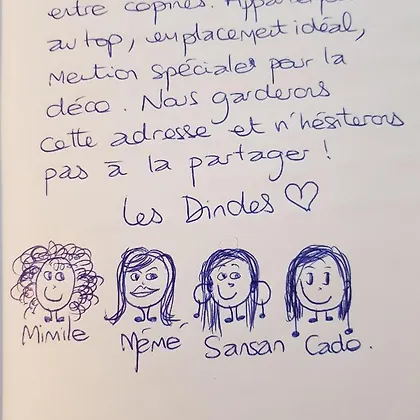 entre copines. Appartement
au top, emplacement idéal,
Mention spéciales pour la
déco. Nous garderons
cette adresse et n'hésiterons
pas à la partager !
Les Dindes ♡
Mimile Mémé Sansan Cado.